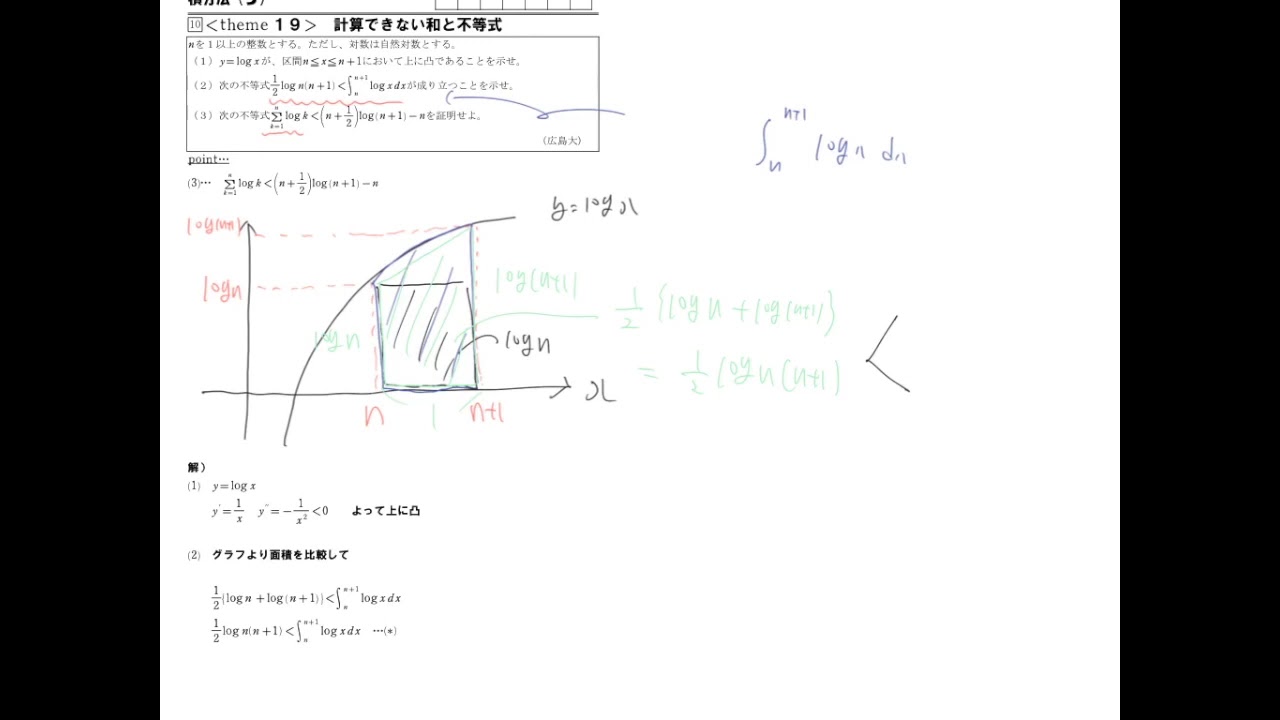 10 <theme 19> 計算できない和と不等式
nを1以上の整数とする。ただし、対数は自然対数とする。
(1) y=log xが、区間n≦x≦n+1において上に凸であることを示せ。
(2) 次の不等式 1/2 log n(n+1)<∫_n^{n+1} log x dx が成り立つことを示せ。
(3) 次の不等式 Σ_{k=1}^{n} log k<(n+1/2)log(n+1)−n を証明せよ。
(広島大)
∫_n^{n+1} log x dx
point…
(3)… Σ_{k=1}^{n} log k<(n+1/2)log(n+1)−n
y=log x
log(n+1)
log n
log(n+1)
1/2 {log n + log(n+1)}
log n
log n
= 1/2 log n(n+1) <
x
n
1
n+1
解)
(1) y=log x
y'=1/x y''=−1/x²<0 よって上に凸
(2) グラフより面積を比較して
1/2{log n+log(n+1)}<∫_n^{n+1} log x dx
1/2 log n(n+1)<∫_n^{n+1} log x dx …(*)